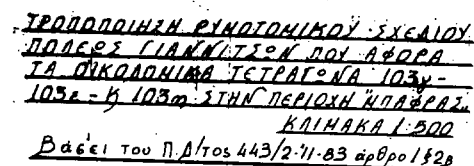 ΤΡΟΠΟΠΟΙΗΣΗ ΡΥΜΟΤΟΜΙΚΟΥ ΣΧΕΔΙΟΥ
ΠΟΛΕΩΣ ΓΙΑΝΝΙΤΣΩΝ ΠΟΥ ΑΦΟΡΑ
ΤΑ ΟΙΚΟΔΟΜΙΚΑ ΤΕΤΡΑΓΩΝΑ 103γ-
103ε-Κ 103η ΣΤΗΝ ΠΕΡΙΟΧΗ ΜΠΑΦΡΑΣ.
ΚΛΙΜΑΚΑ 1:500
Βάσει του Π.Δ/τος 443/2-11-83 άρθρο 1§2β